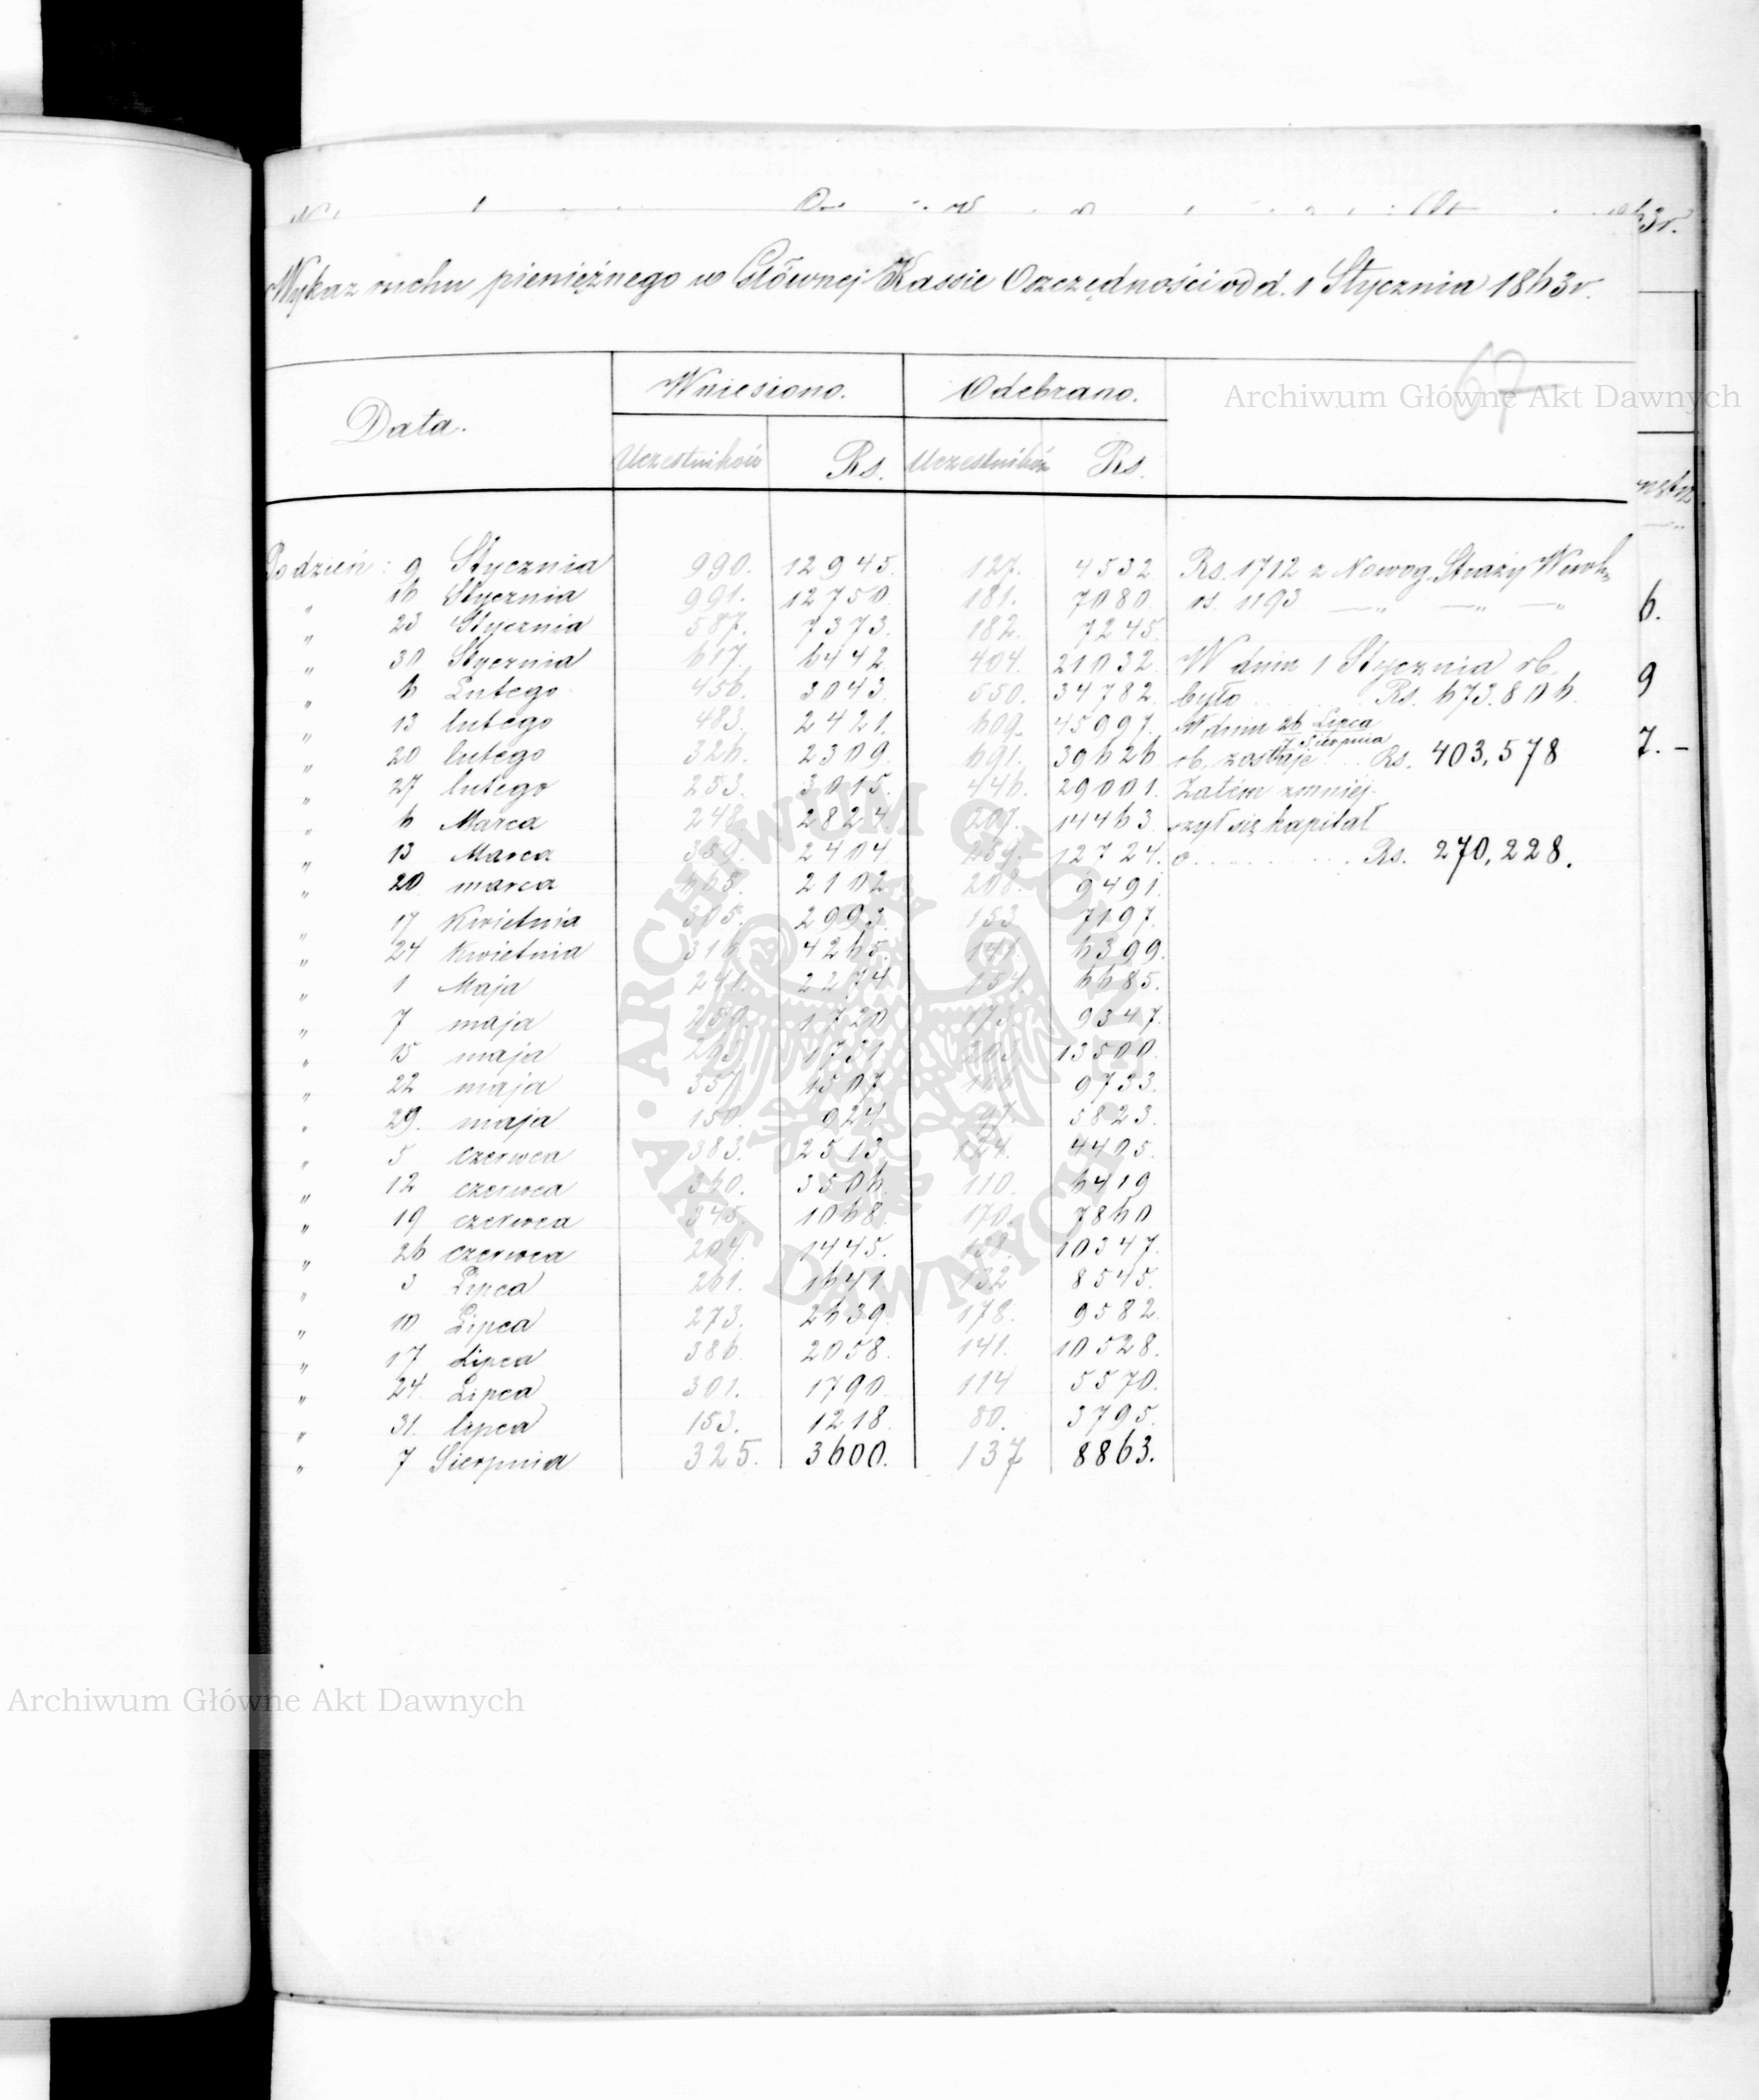 Wykaz ruchu pieniężnego w Głównej Kassie Oszczędności od d. 1 Stycznia 1863 r.
67
Archiwum Główne Akt Dawnych
Data. Wniesiono. Odebrano.
Uczestników Rs. Uczestników Rs.
Po dzień: 9 Stycznia 990. 12945. 127. 4532 Rs. 1712 z Nowog. Straży
" 16 Stycznia 991. 12750 181. 7080 rs. 1193 —"— —"— —"—
" 23 Stycznia 587. 7373. 182. 7245
" 30 Stycznia 617. 6442 404. 21032. W dniu 1 Stycznia rb.
" 6 Lutego 456. 3043. 550. 34782. było Rs. 673.806.
" 13 lutego 483. 2421. 609. 45997. W dniu 26 Lipca
7 Sierpnia
" 20 lutego 326. 2309. 691. 39626 rb. zostaje Rs. 403,578
" 27 lutego 253. 3015. 446. 29001. Zatém zmniej-
" 6 Marca 248. 2824. 207. 14463 szył się kapitał
" 13 Marca 359. 2404 12724. o Rs. 270,228.
" 20 marca 2102 208. 9491.
" 17 Kwietnia 305. 2993. 153 7197.
" 24 Kwietnia 316. 4265. 141. 6399.
" 1 Maja 241. 2274 154. 6685.
" 7 maja 1720 173. 9347.
" 15 maja 265. 1751 13500.
" 22 maja 357 1507 9733.
" 29. maja 150. 924. 97. 5823.
" 5 czerwca 383. 2513. 124. 4405.
" 12 czerwca 360. 3506. 110. 6419
" 19 czerwca 345. 1068. 170. 7860
" 26 czerwca 204. 1445. 138. 10347.
" 3 Lipca 261. 1641. 132 8545.
" 10 Lipca 273. 2639. 178. 9582
" 17 Lipca 386. 2058. 141. 10528.
" 24. Lipca 301. 1790. 114 5570.
" 31. lipca 153. 1218. 80. 3795.
" 7 Sierpnia 325. 3600. 137 8863.
6.
9
7. –
ARCHIWUM GŁÓWNE AKT DAWNYCH
Archiwum Główne Akt Dawnych